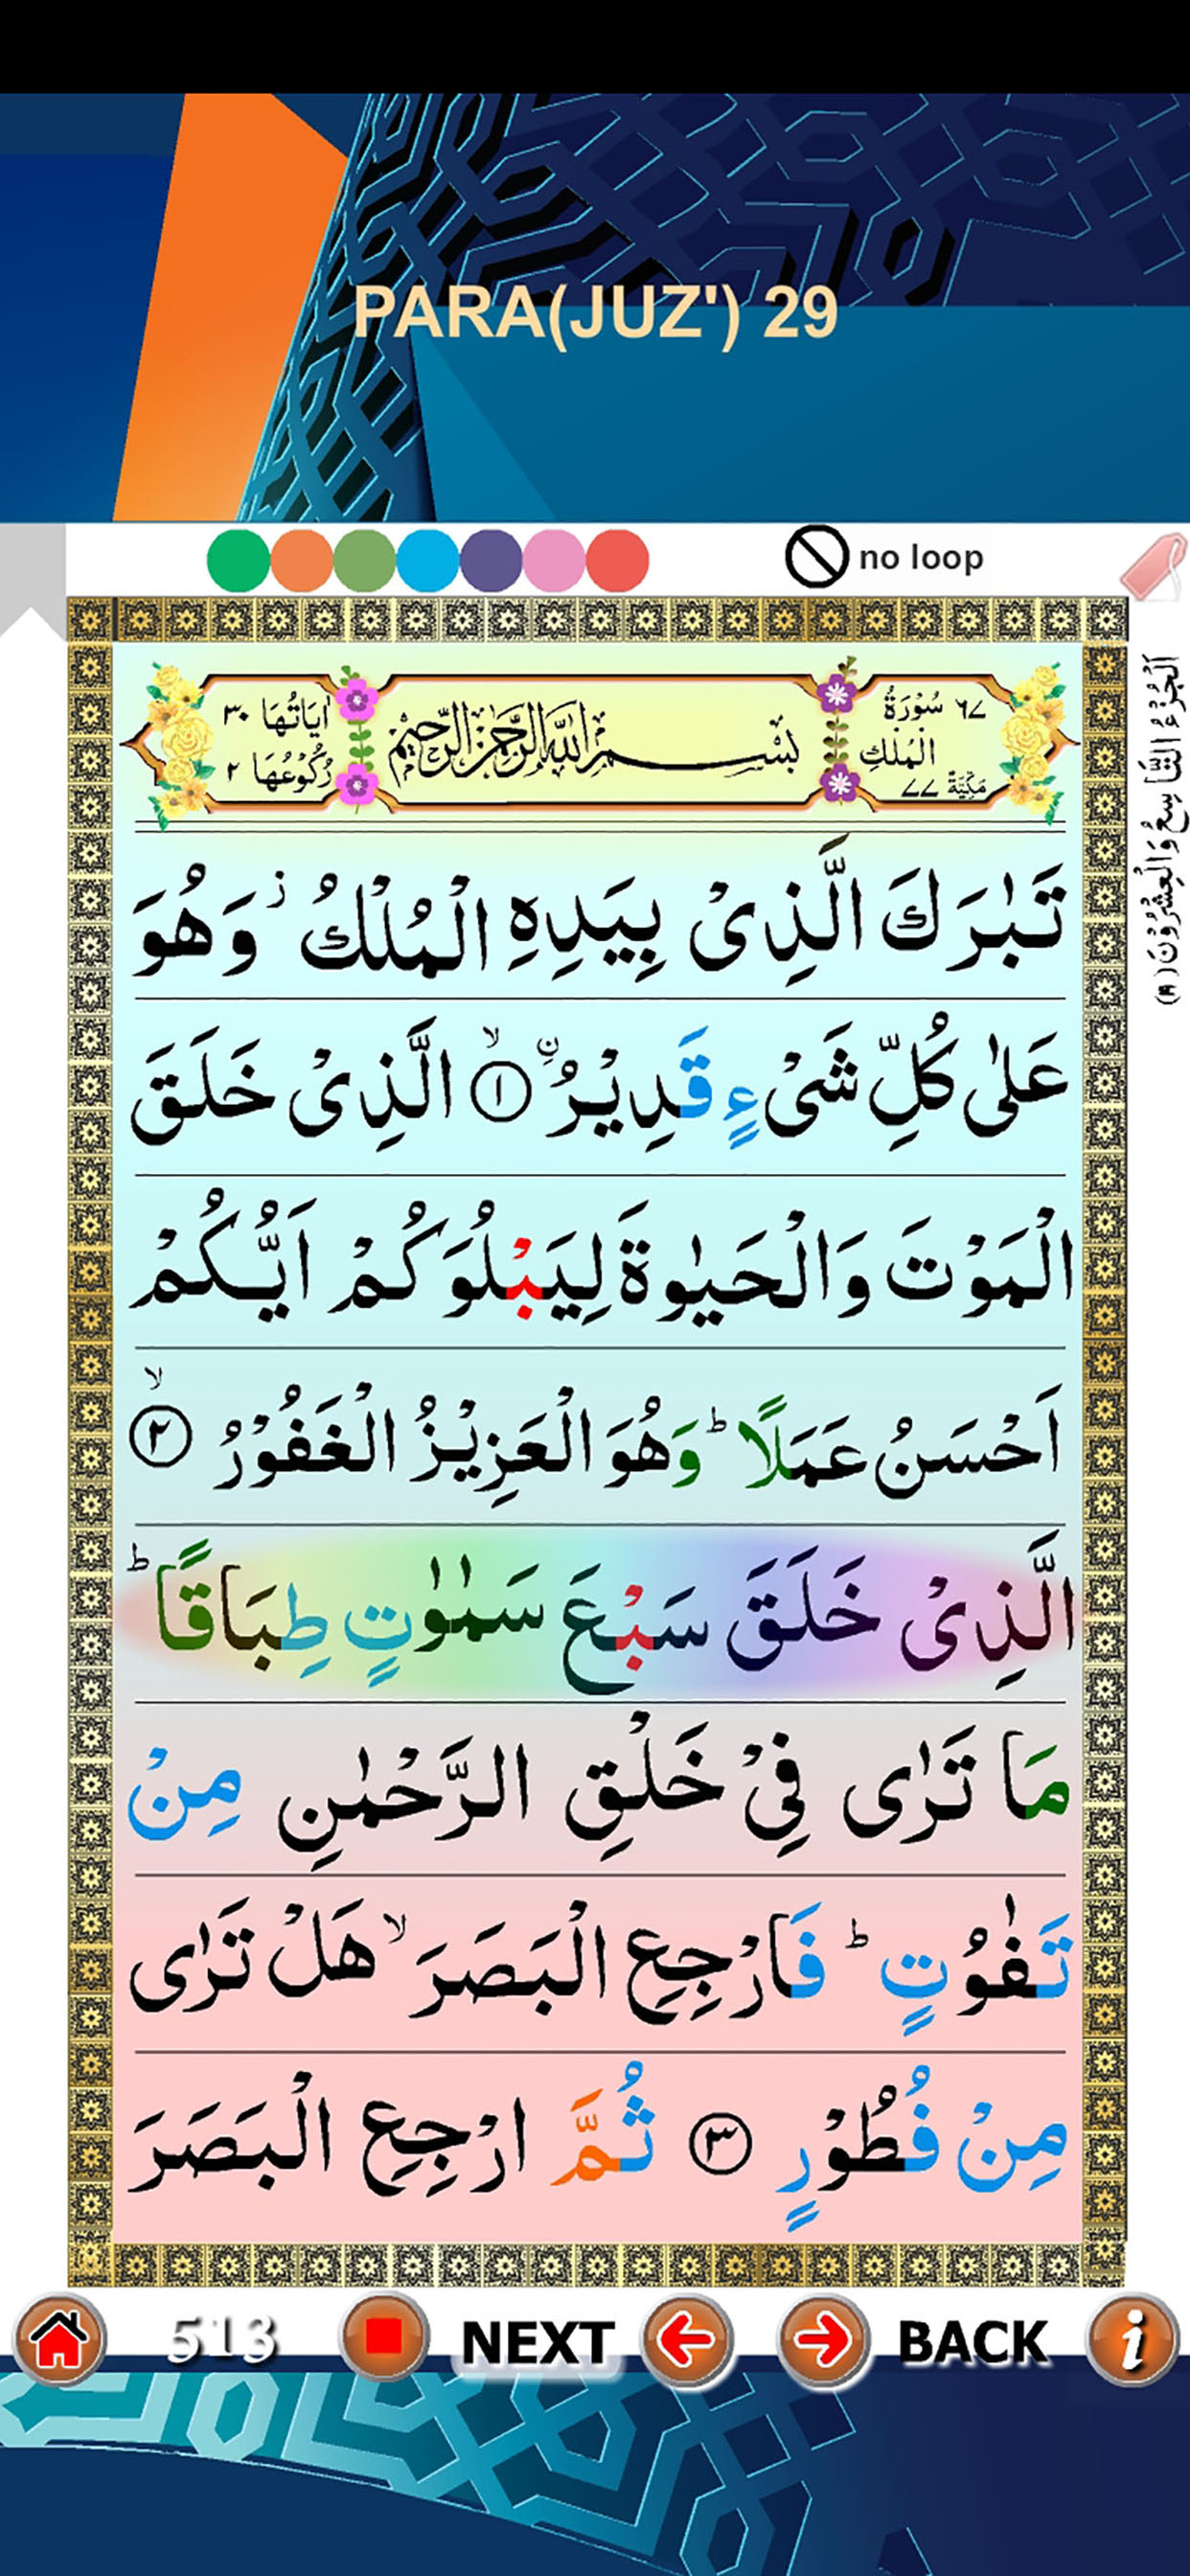 PARA(JUZ') 29
no loop
اَلْجُزْءُ التَّاسِعُ وَالْعِشْرُوْنَ (٢٩)
٦٧ سُوْرَةُ الْمُلْكِ مَكِّيَّةٌ ٧٧
بِسْمِ اللّٰهِ الرَّحْمٰنِ الرَّحِيْمِ
اٰيَاتُهَا ٣٠ رُكُوْعُهَا ٢
تَبٰرَكَ الَّذِىْ بِيَدِهِ الْمُلْكُ ز وَهُوَ
عَلٰى كُلِّ شَىْءٍ قَدِيْرُ ۨ ۙ ١ الَّذِىْ خَلَقَ
الْمَوْتَ وَالْحَيٰوةَ لِيَبْلُوَكُمْ اَيُّكُمْ
اَحْسَنُ عَمَلًا ؕ وَهُوَ الْعَزِيْزُ الْغَفُوْرُ ۙ ٢
الَّذِىْ خَلَقَ سَبْعَ سَمٰوٰتٍ طِبَاقًا ؕ
مَا تَرٰى فِىْ خَلْقِ الرَّحْمٰنِ مِنْ
تَفٰوُتٍ ؕ فَارْجِعِ الْبَصَرَ ۙ هَلْ تَرٰى
مِنْ فُطُوْرٍ ٣ ثُمَّ ارْجِعِ الْبَصَرَ
513
NEXT
BACK
i